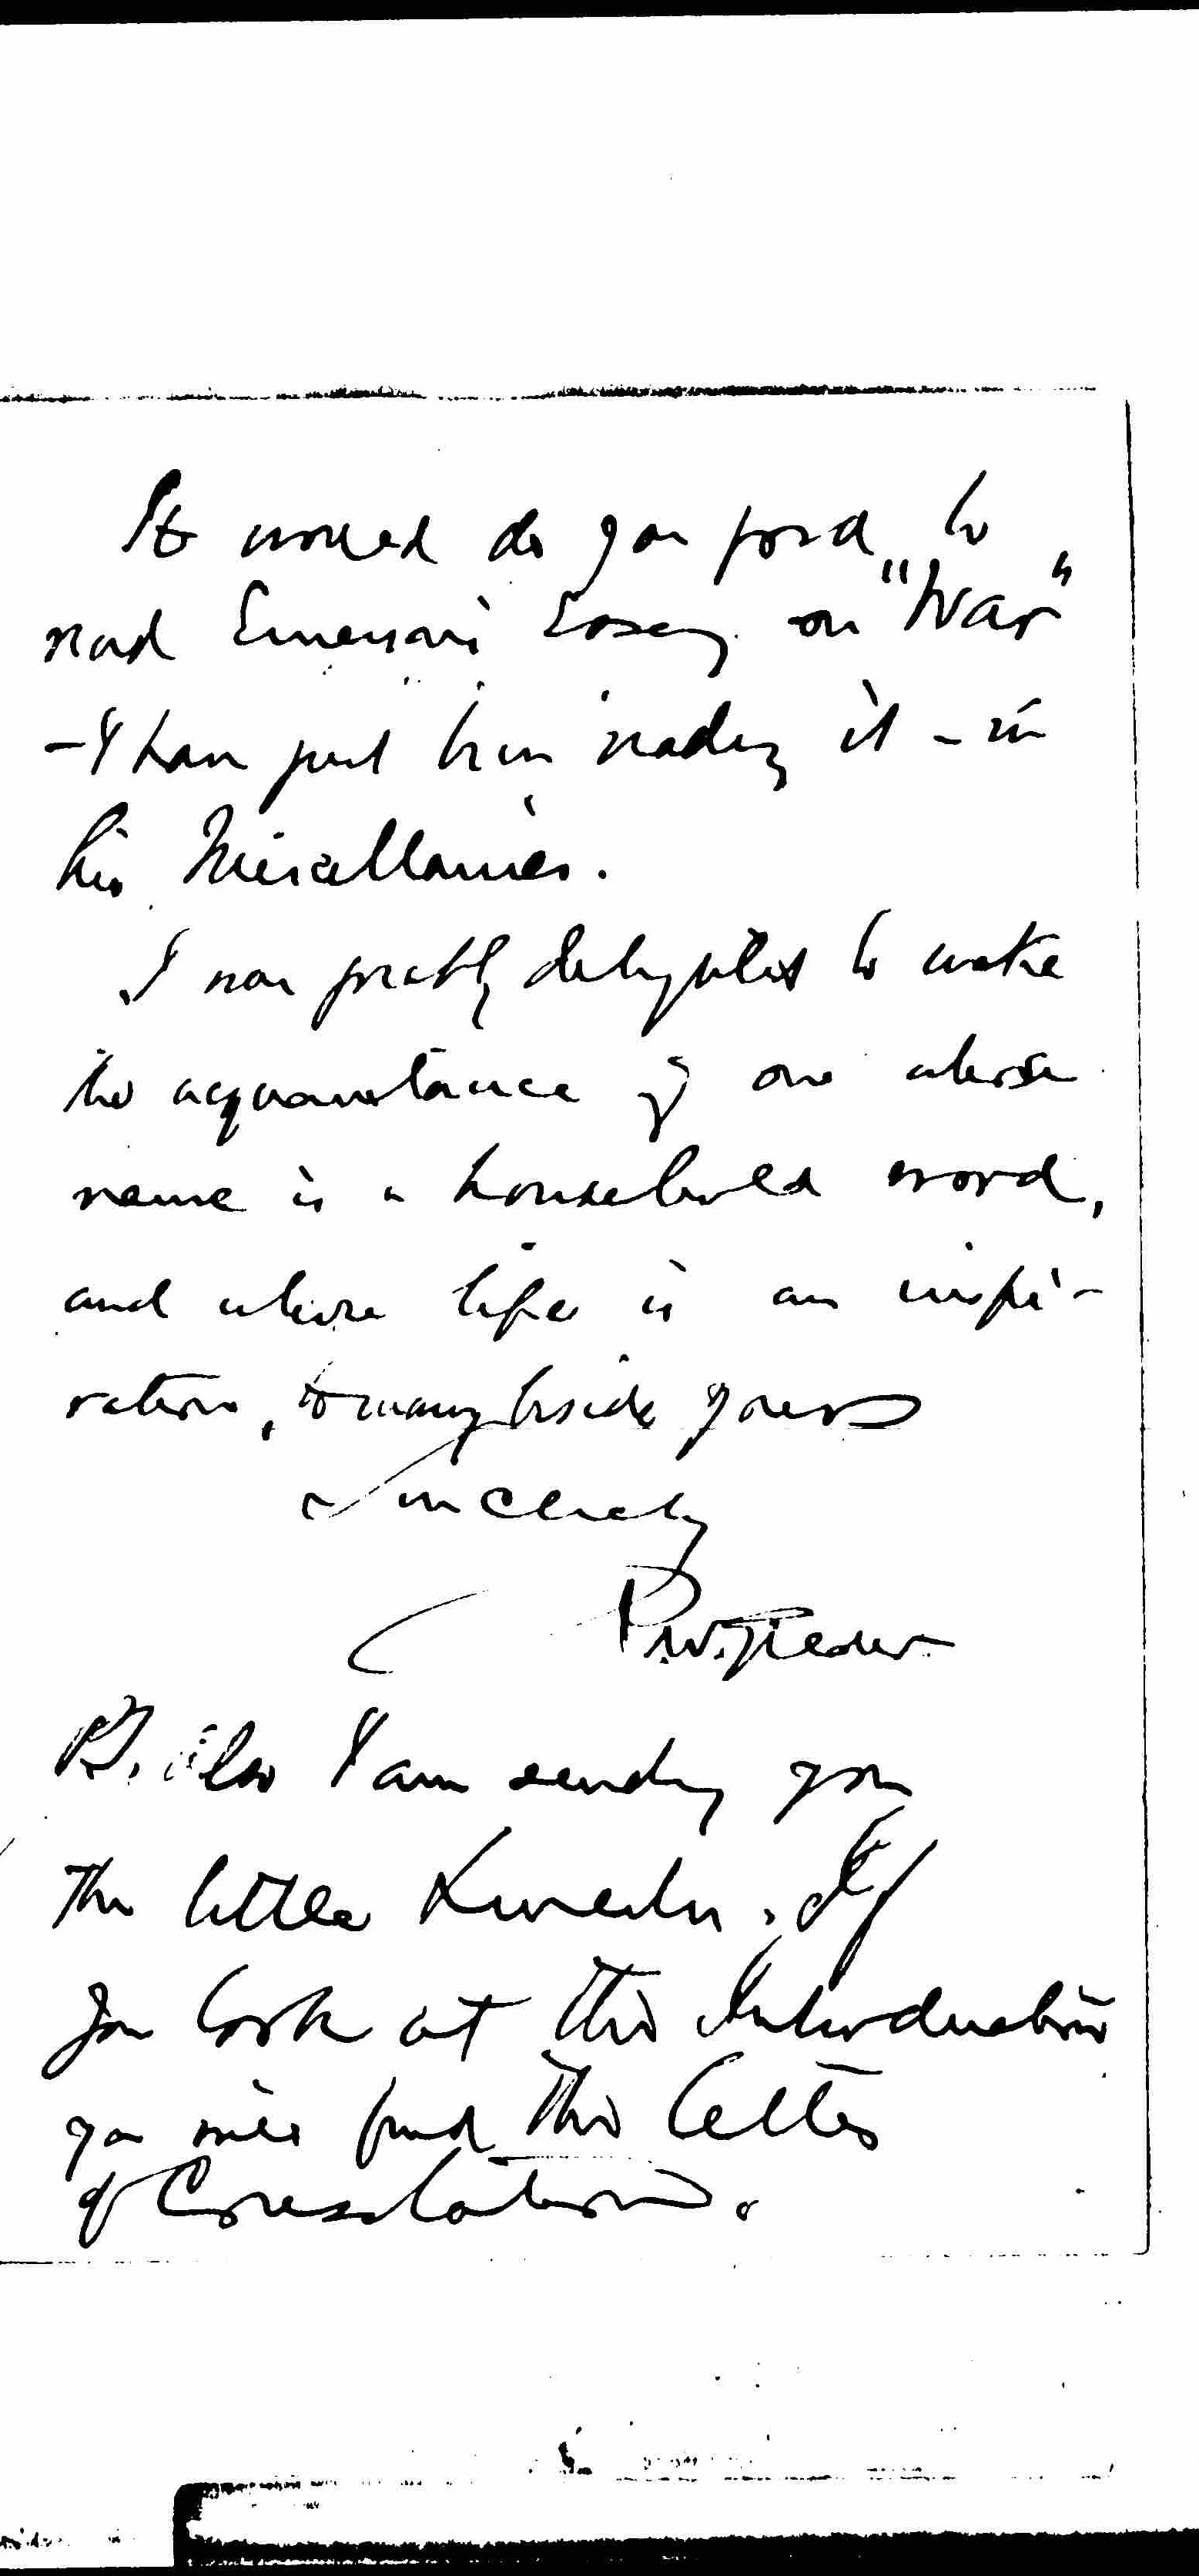 It would do you good to
read Emerson's Essay on "War"
- I have just been reading it - in
his Miscellanies.
I was greatly delighted to make
the acquaintance of one whose
name is a household word,
and whose life is an inspi-
ration, to many beside yours
Sincerely
R.W. Gilder
P.S. Also I am sending you
The little Lincoln. If
you look at the Introduction
you will find the letter
of Consolation.